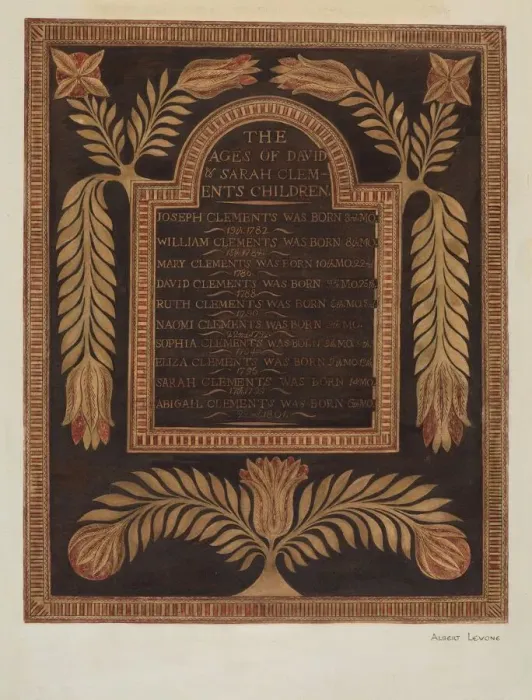 THE
AGES OF DAVID
& SARAH CLEM-
ENTS CHILDREN
JOSEPH CLEMENTS WAS BORN 3rd MO
19th 1782
WILLIAM CLEMENTS WAS BORN 8th MO
1784
MARY CLEMENTS WAS BORN 10th MO
1786
DAVID CLEMENTS WAS BORN
1788
RUTH CLEMENTS WAS BORN MO
NAOMI CLEMENTS WAS BORN
SOPHIA CLEMENTS WAS BORN MO
ELIZA CLEMENTS WAS BORN MO
1796
SARAH CLEMENTS WAS BORN MO
ABIGAIL CLEMENTS WAS BORN MO
1801
ALBERT LEVONE